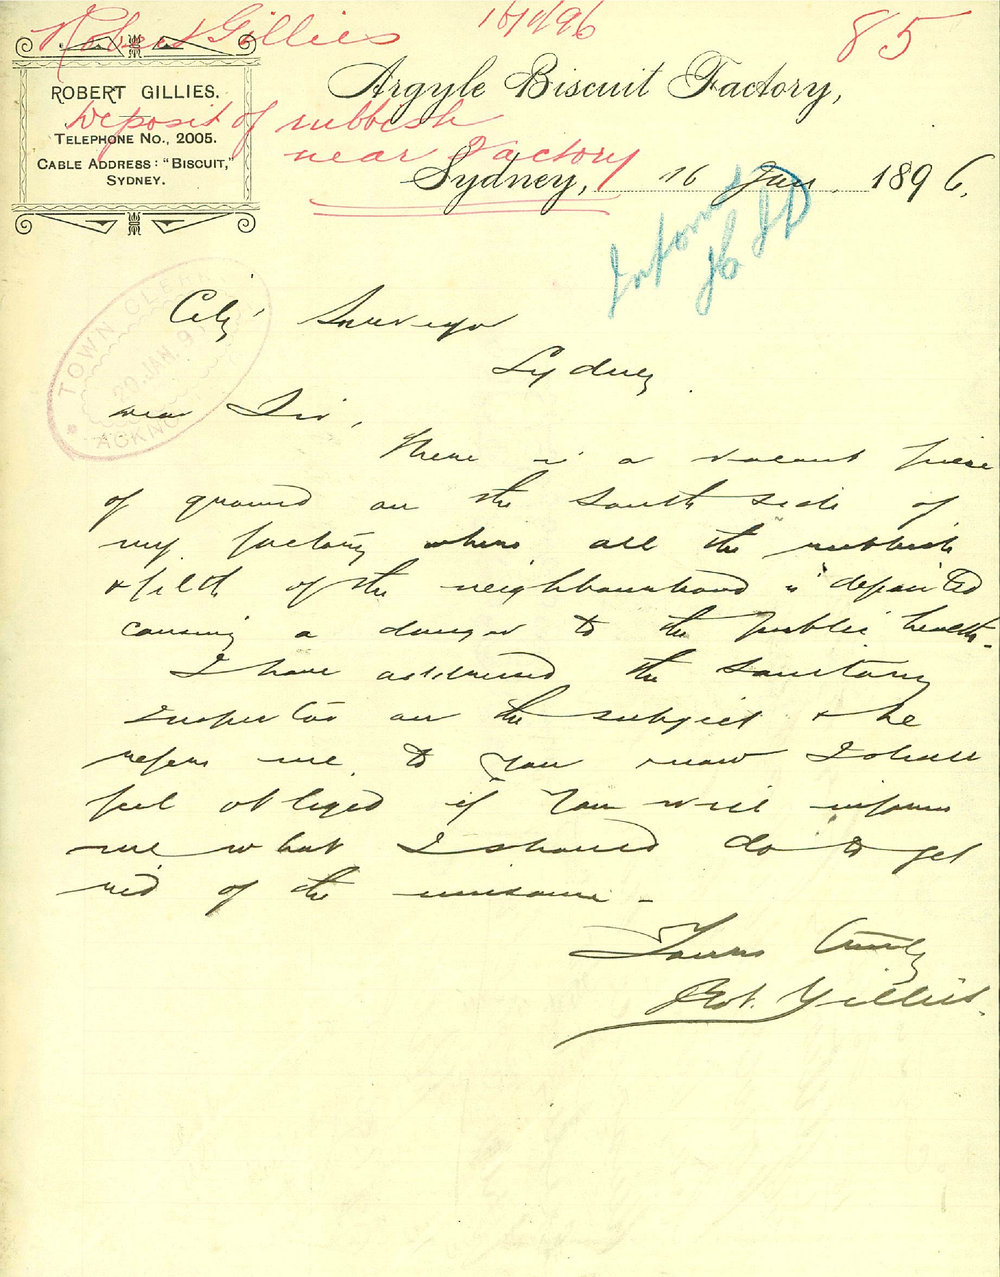 Robert Gillies 16/1/96 85
ROBERT GILLIES.
TELEPHONE No., 2005.
CABLE ADDRESS: "BISCUIT,"
SYDNEY.
Argyle Biscuit Factory,
Deposit of rubbish
near Factory
Sydney, 16 Jan. 1896.
Inform
TOWN CLERK
20 JAN. 9
ACKNO
City Surveyor
Sydney.
Dear Sir,
There is a vacant piece
of ground on the South side of
my factory where all the rubbish
& filth of the neighbourhood is deposited
causing a danger to the public health.
I have addressed the Sanitary
Inspector on the subject & he
refers me to you now I shall
feel obliged if you will inform
me what I should do to get
rid of the nuisance -
Yours truly
Robt. Gillies.